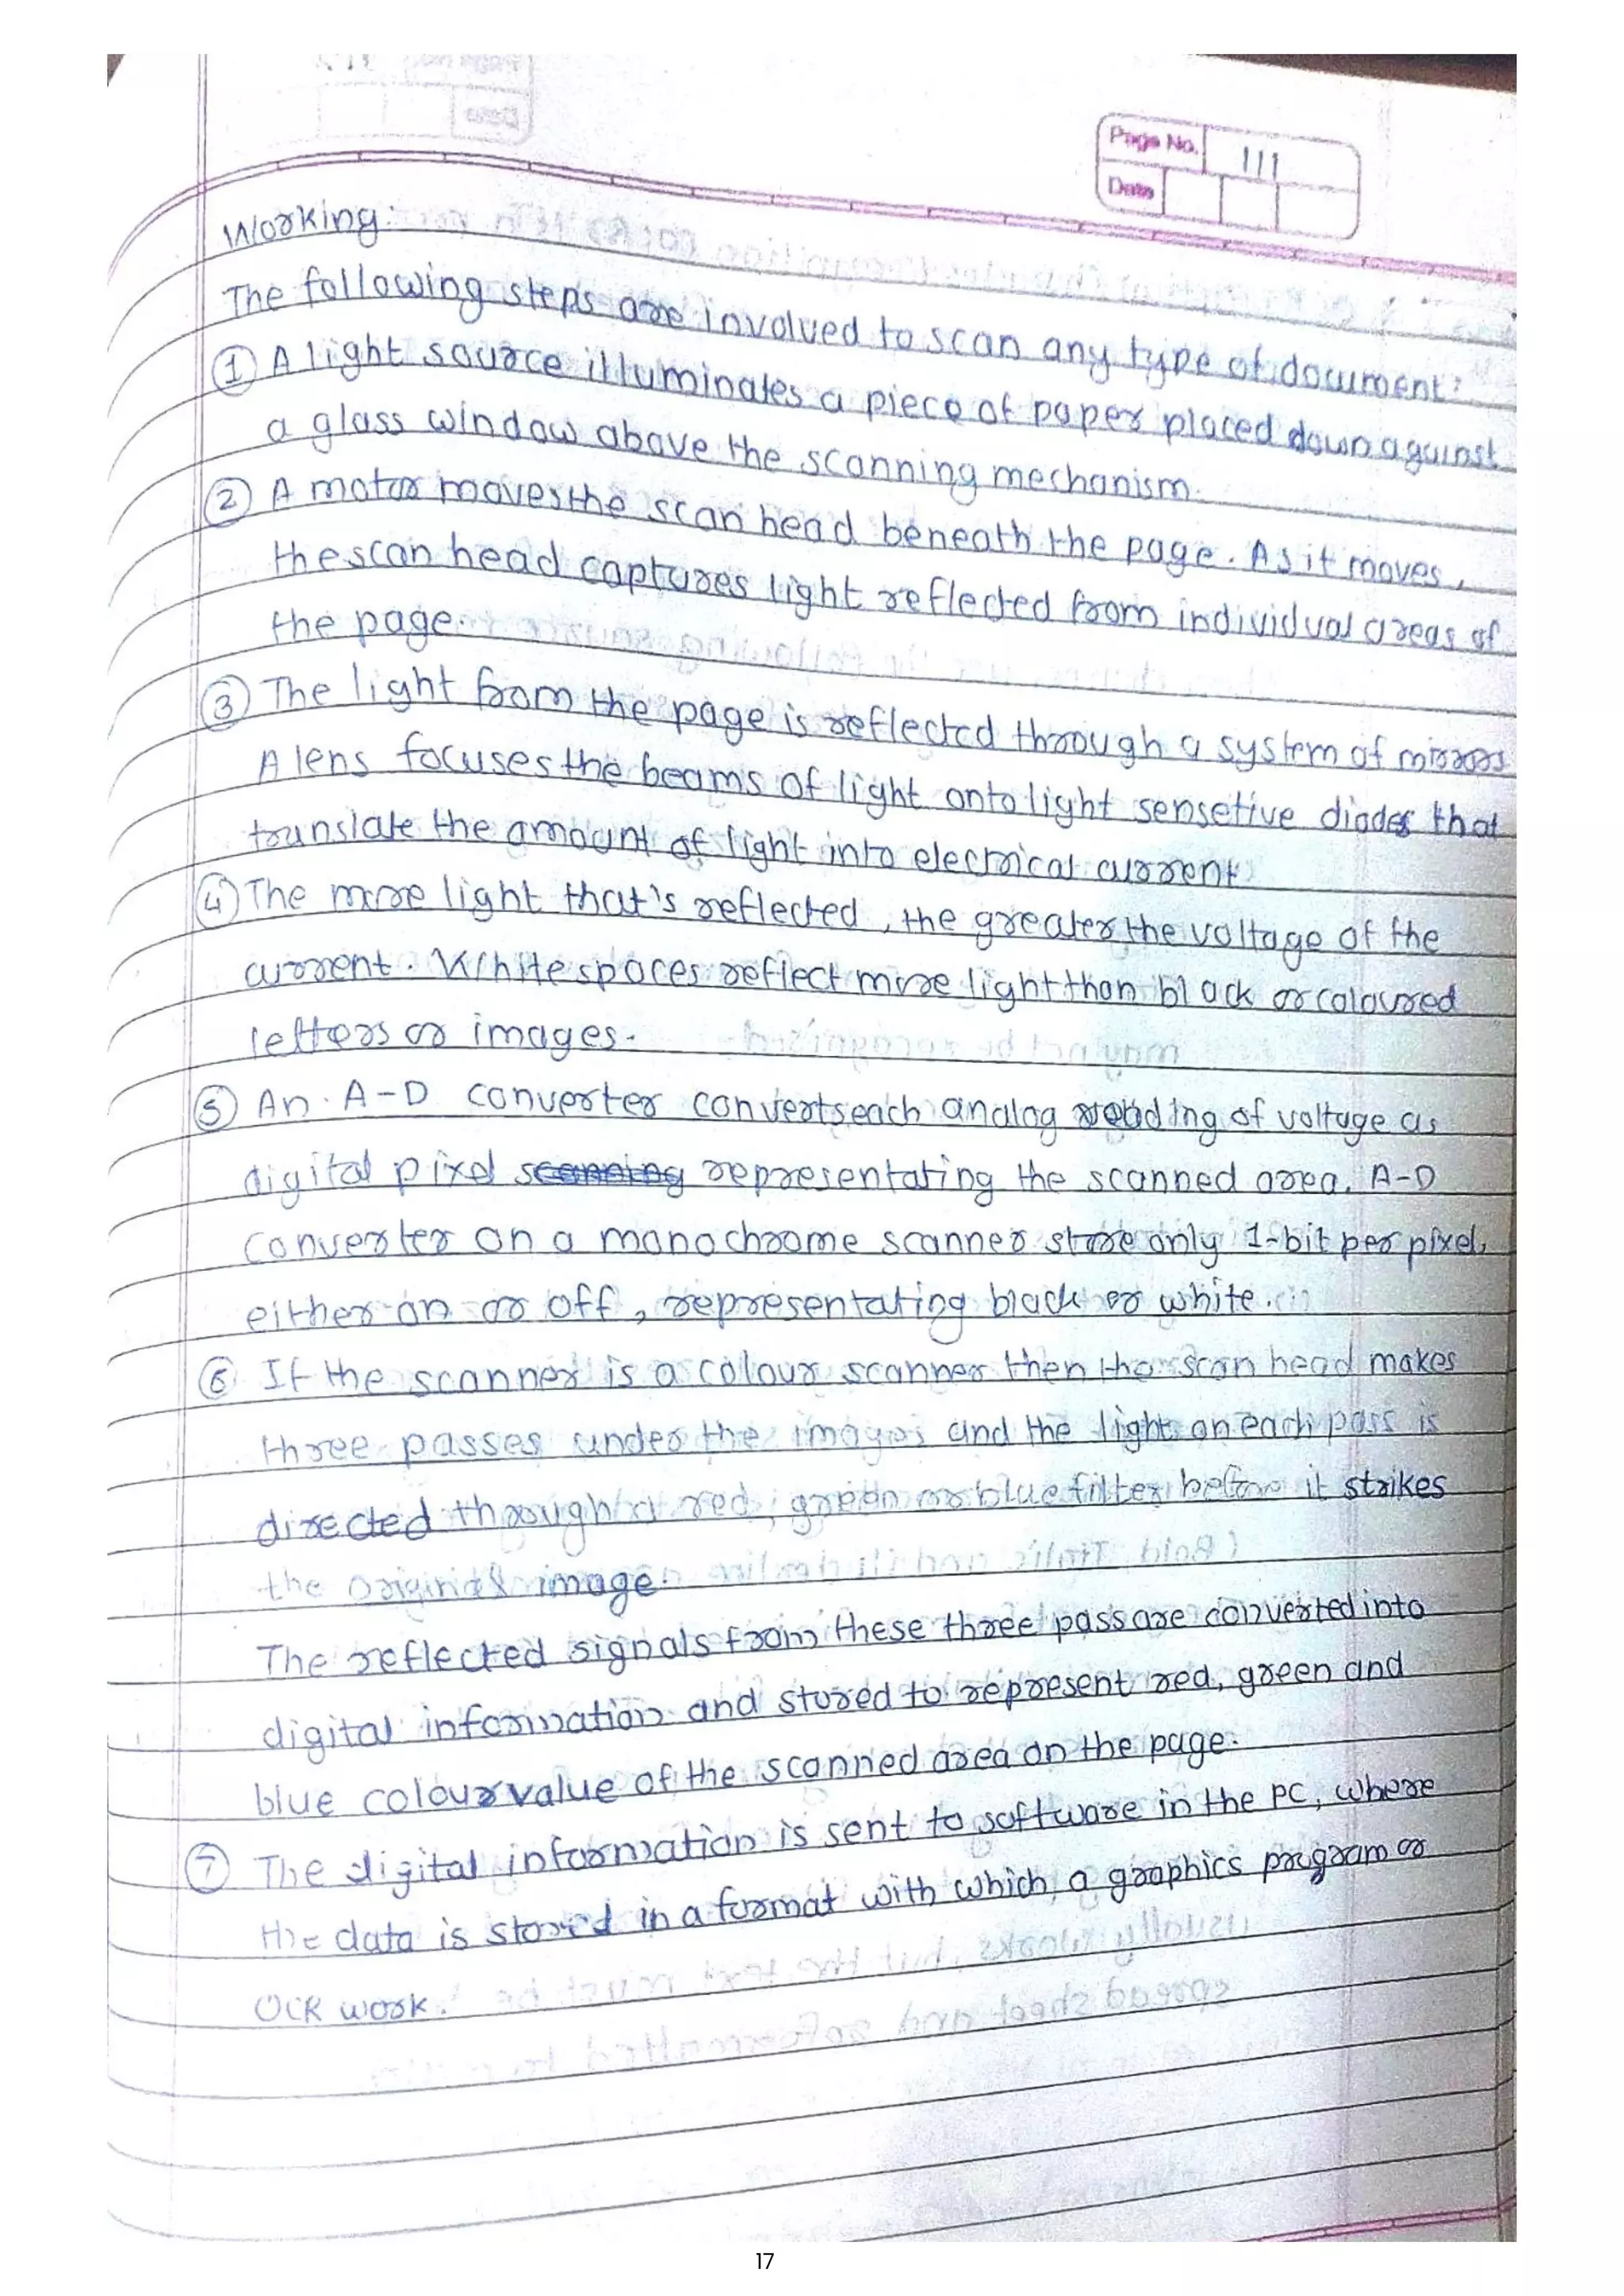 Page No. 111
Date
Working:
The following steps are involved to scan any type of document:
① A light source illuminates a piece of paper placed down against
a glass window above the scanning mechanism.
② A motor moves the scan head beneath the page. As it moves,
the scan head captures light reflected from individual areas of
the page.
③ The light from the page is reflected through a system of mirrors
A lens focuses the beams of light onto light sensetive diodes that
translate the amount of light into elecrrical current
④ The more light that's reflected, the greater the voltage of the
current. White spaces reflect more light than black or coloured
letters or images.
⑤ An A-D converter converts each analog reading of voltage as
digital pixel representating the scanned area. A-D
Converter on a monochrome scanner store only 1-bit per pixel,
either on or off, representating black or white.
⑥ If the scanner is a colour scanner then the scan head makes
three passes under the images and the light on each pass is
directed through a red, green or blue filter before it strikes
the original image.
The reflected signals from these three pass are converted into
digital information and stored to represent red, green and
blue colour value of the scanned area on the page.
⑦ The digital information is sent to software in the PC, where
the data is stored in a format with which a graphics program or
OCR work.
17